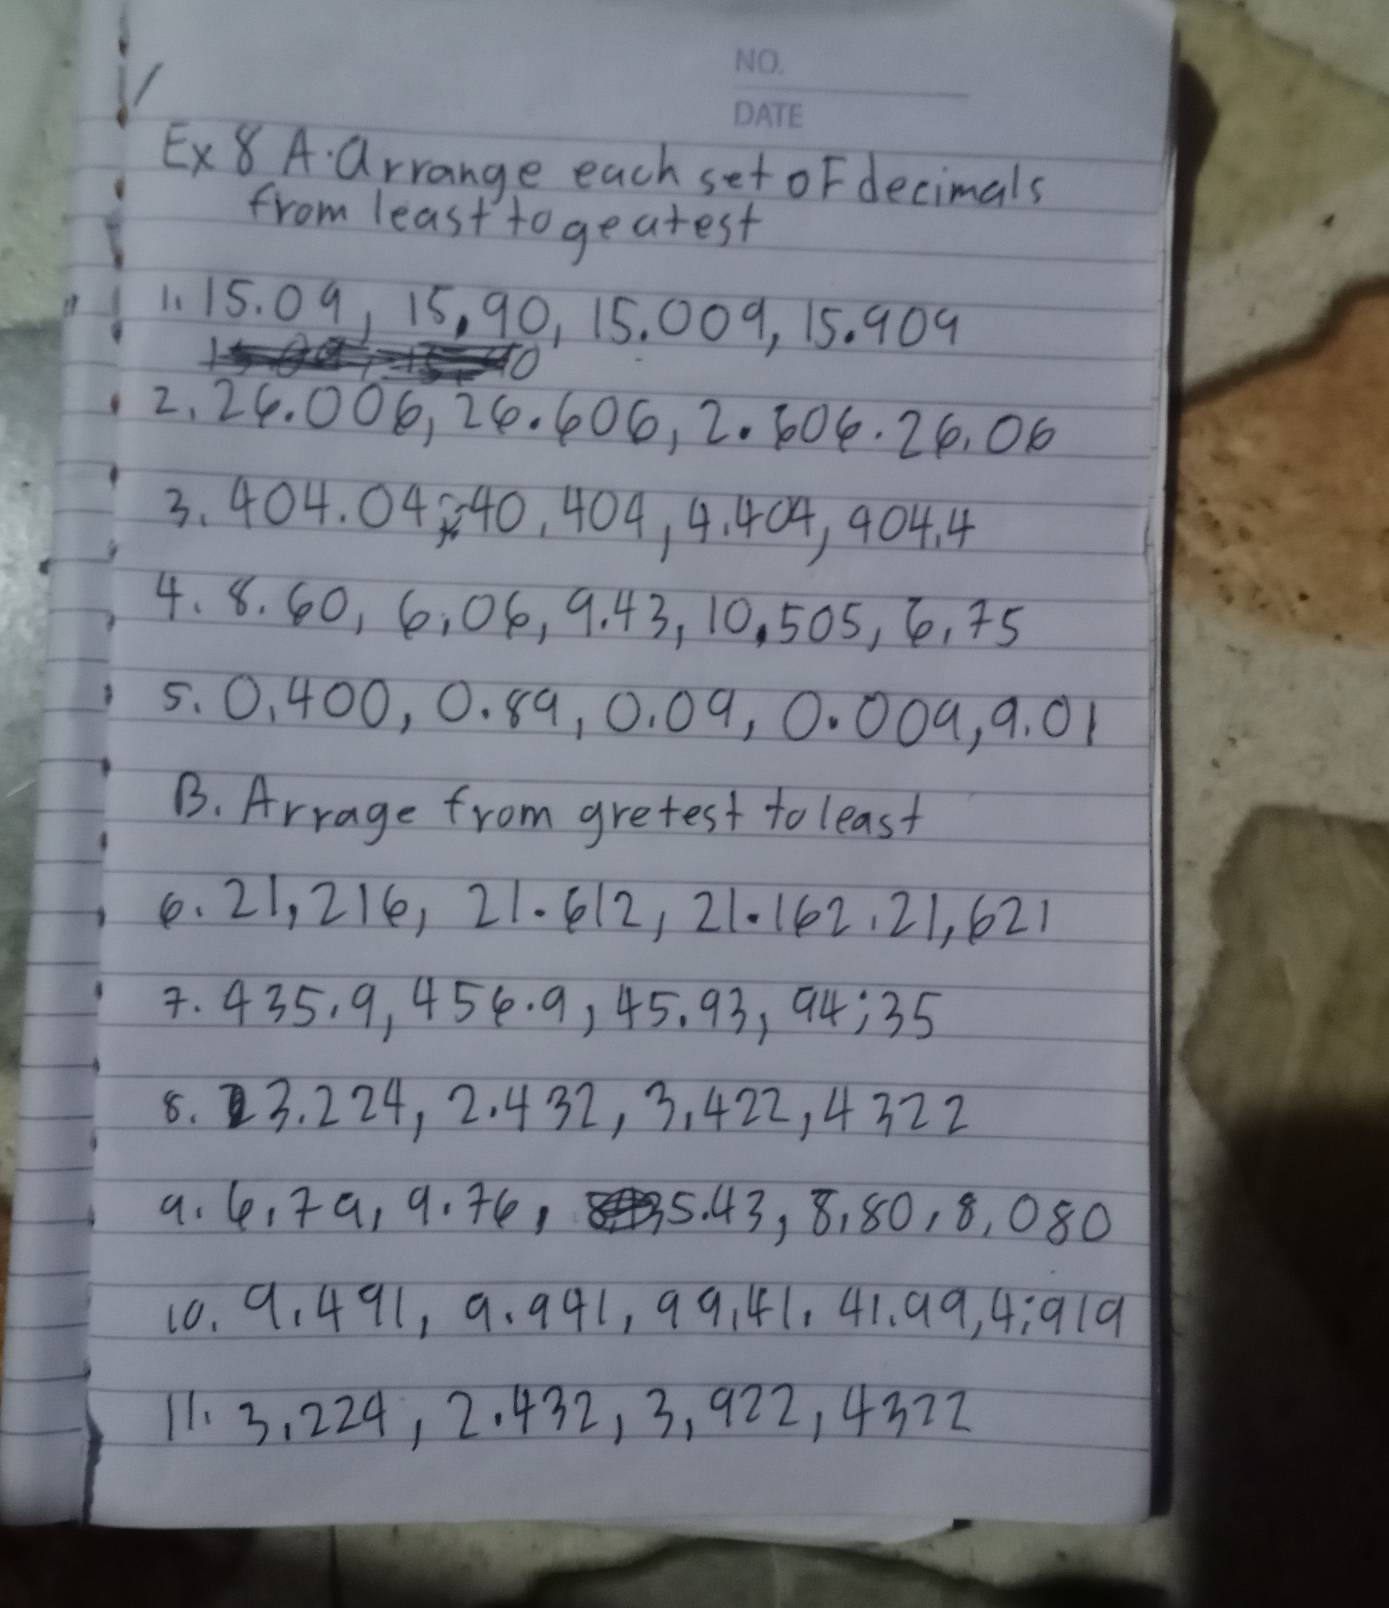 NO.
DATE
Ex 8 A. Arrange each set of decimals
from least to geatest
1. 15.09, 15.90, 15.009, 15.909
2. 26.006, 26.606, 2.606. 26.06
3. 404.04, 40.404, 4.404, 904.4
4. 8.60, 6.06, 9.43, 10.505, 6.75
5. 0.400, 0.89, 0.09, 0.009, 9.01
B. Arrage from gretest to least
6. 21,216, 21.612, 21.162, 21,621
7. 435.9, 456.9, 45.93, 94;35
8. 3.224, 2.432, 3,422, 4322
9. 6,79, 9.76, 5.43, 8,80, 8,080
10. 9.491, 9.991, 99,41, 41.99, 4;919
11. 3,224, 2.432, 3,922, 4322